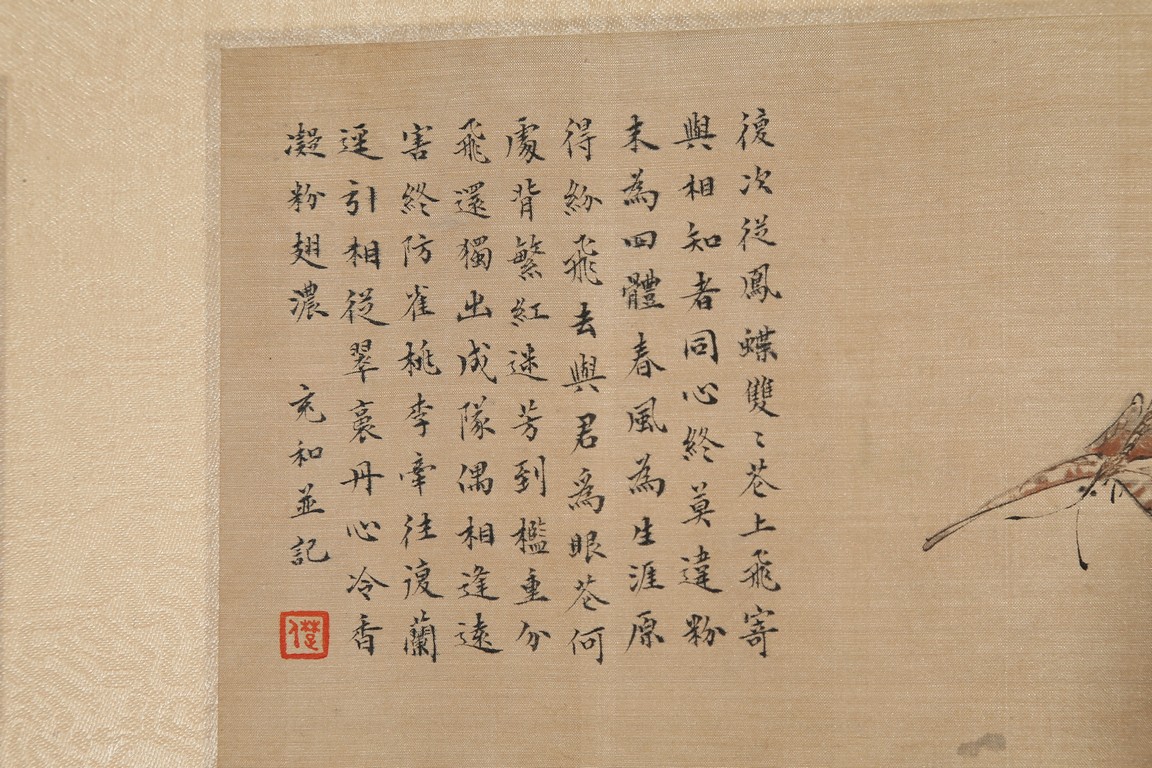 復次從鳳蝶雙〻苍上飛寄
與相知者同心終莫違粉
末為四體春風為生涯原
得紛飛去與君爲眼苍何
處背繁紅迷芳到檻重分
飛還獨出成隊偶相逢遠
害終防雀桃李牽往復蘭
逕引相從翠裏丹心冷香
凝粉翅濃 充和並記